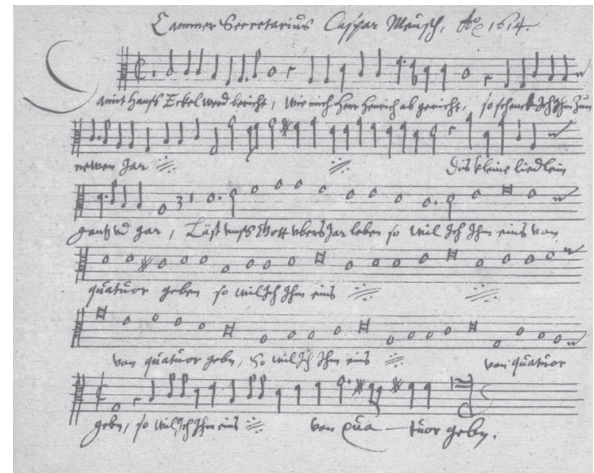 Cammer Secretarius Caspar Meusch, Ao 1614.
Hanss Eckel werd bericht, wie mich herr Henrich abgericht, so schenck Ich Ihm zum
newen Jar Dis kleine liedlein
gantz vnd gar, Läst vnss Gott vbers Jar leben so will Ich Ihm eins von
quatuor geben so will Ich Ihm eins
von quatuor gebn, so will Ich Ihm eins von quatuor
gebn, so will Ich Ihm eins von qua - tuor gebn.